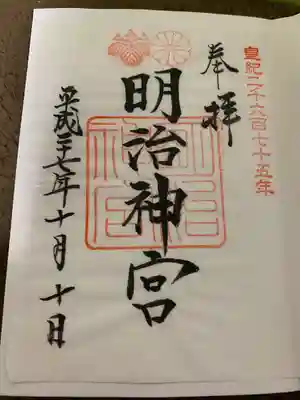 皇紀二千六百七十五年
奉拝
明治神宮
明治
神宮
平成二十七年十月十日